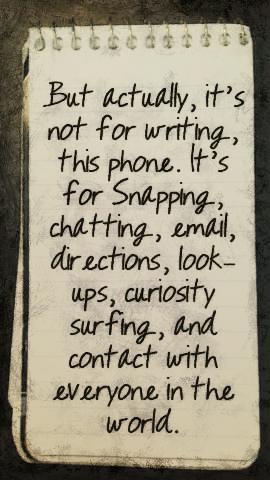 But actually, it's
not for writing,
this phone. It's
for Snapping,
chatting, email,
directions, look-
ups, curiosity
surfing, and
contact with
everyone in the
world.